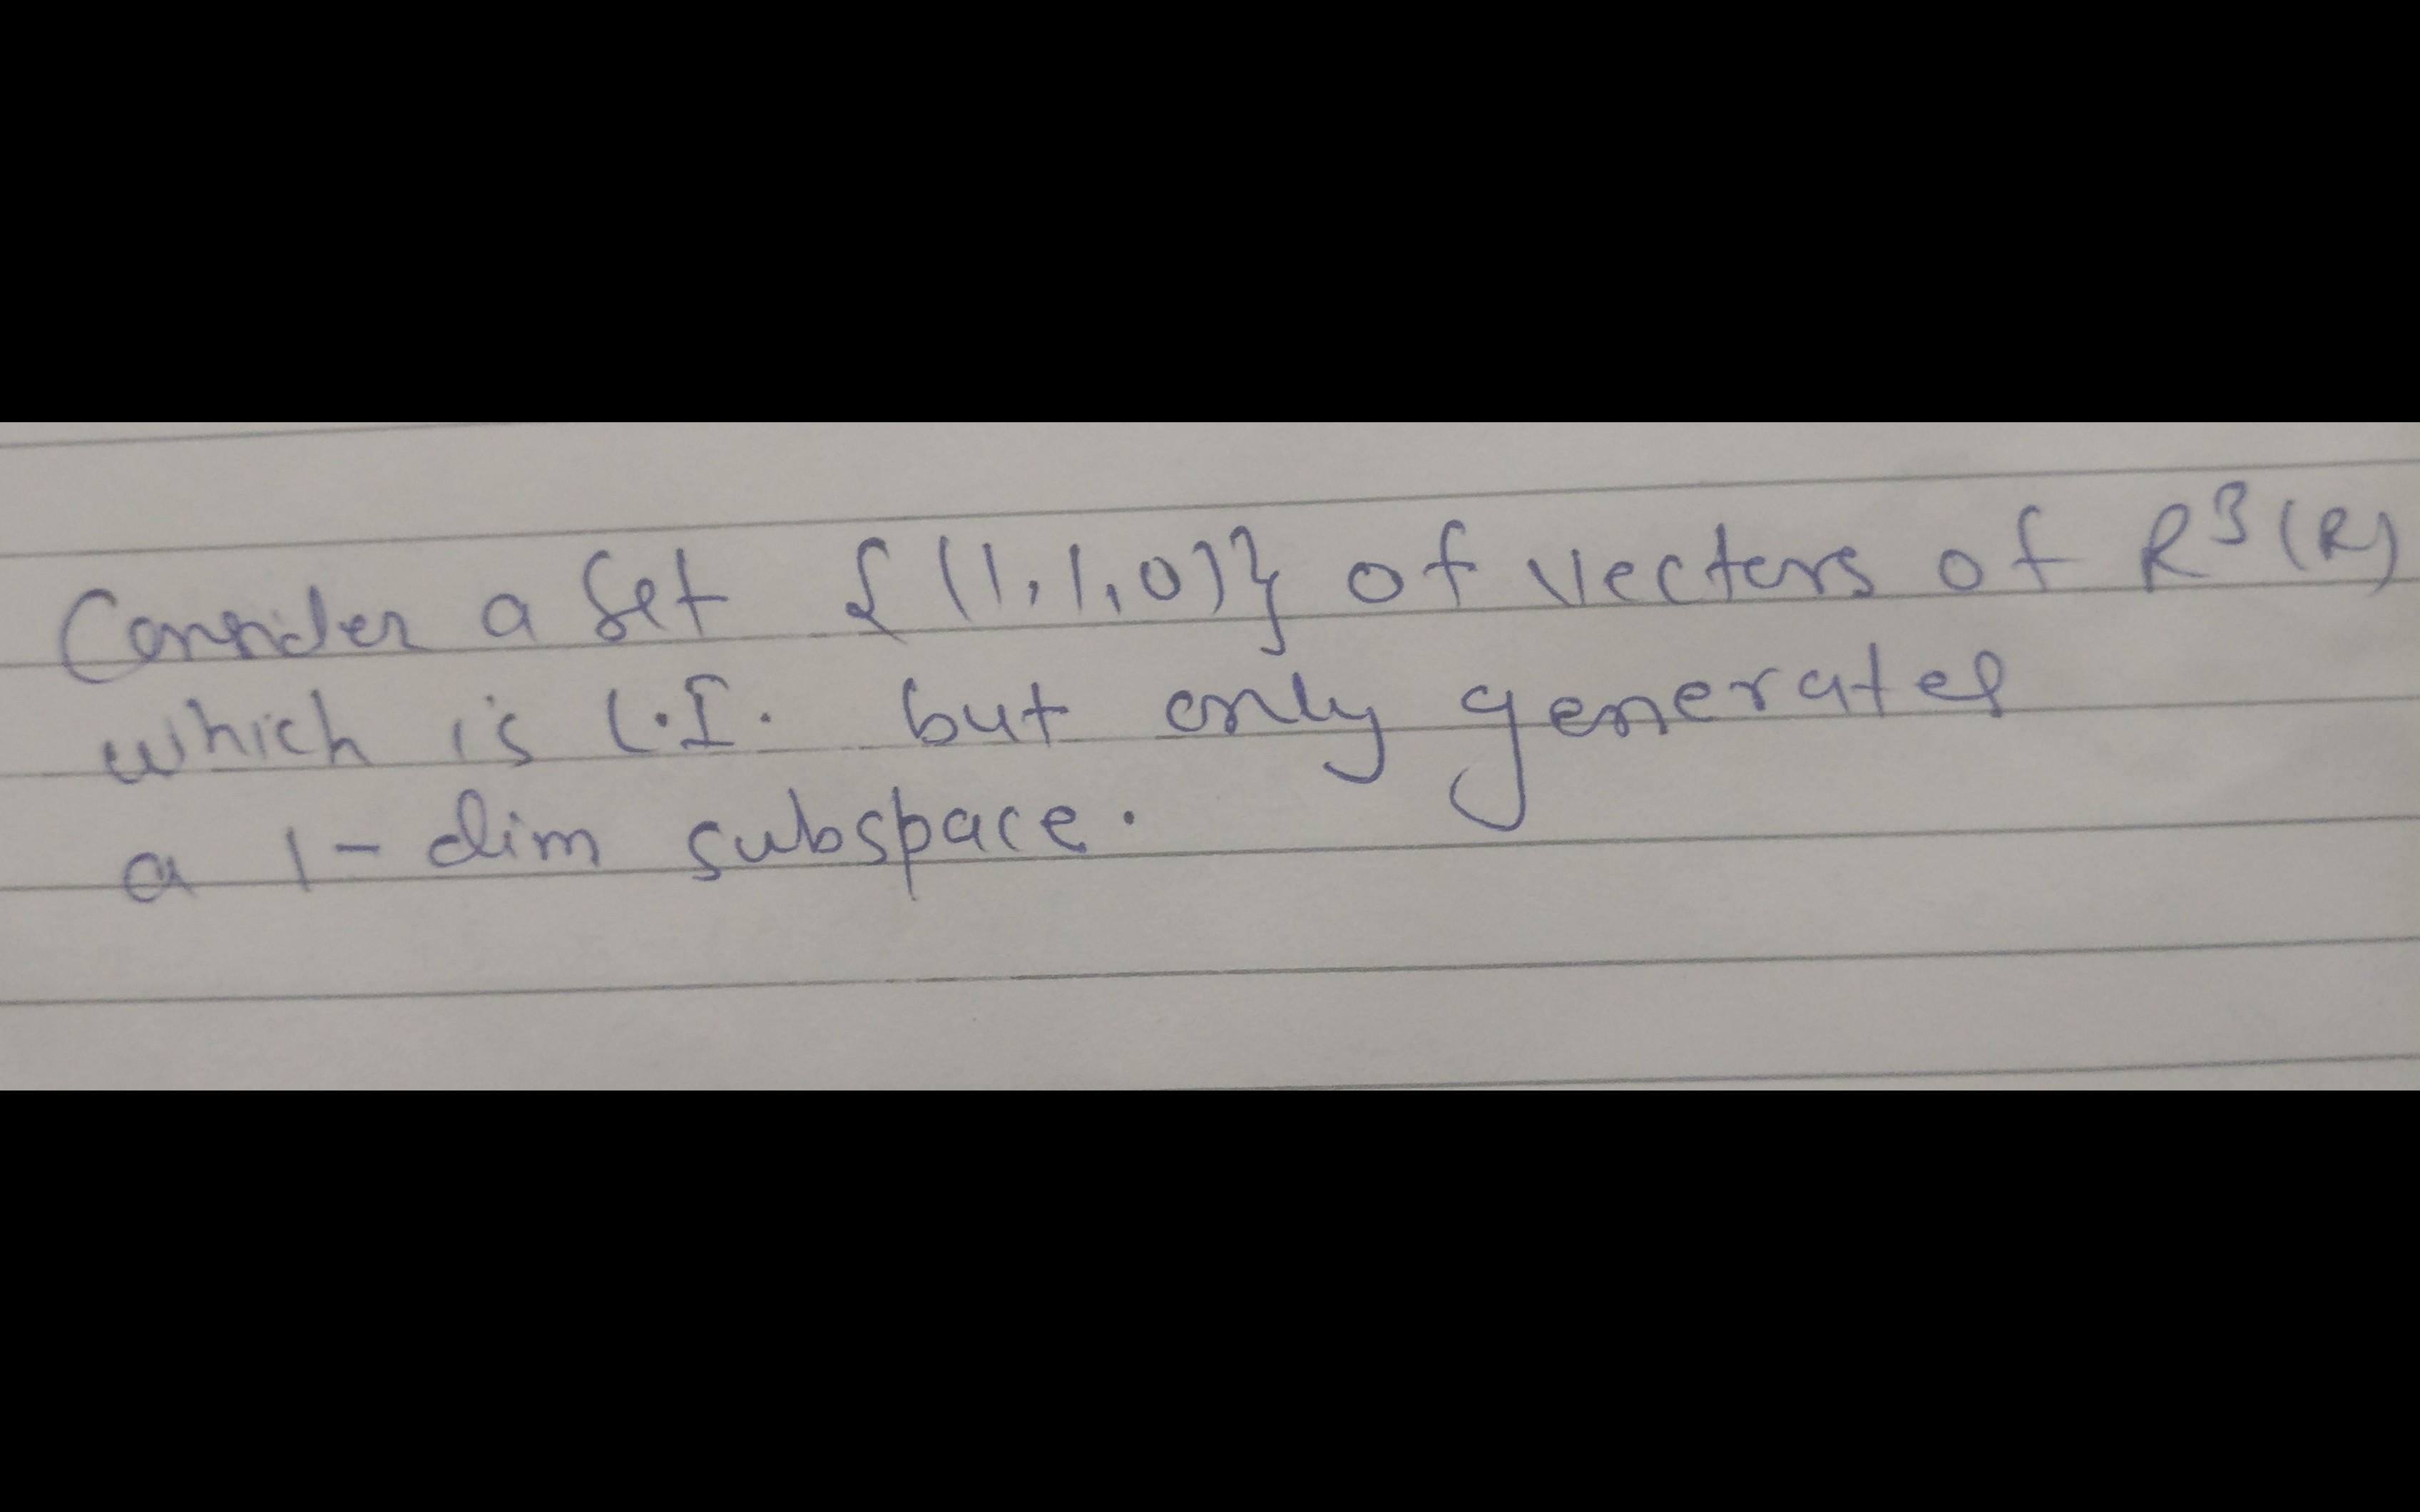 Consider a set {(1,1,0)} of vectors of R³(R)
which is L.I. but only generates
a 1-dim subspace.